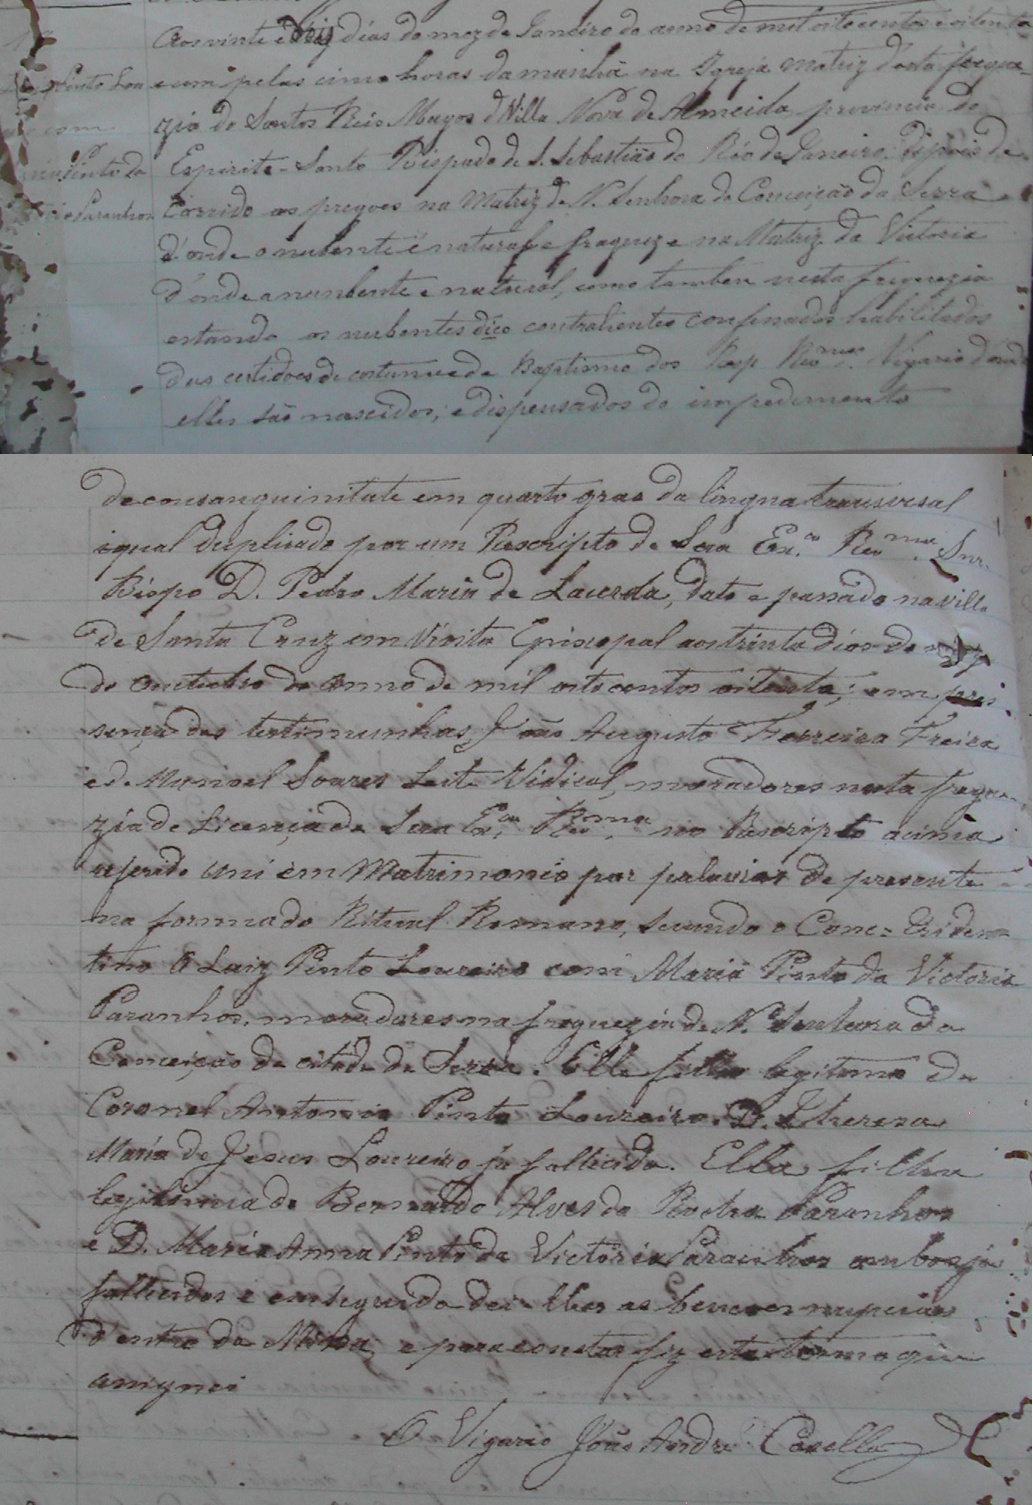 Aos vinte e dois dias do mez de Janeiro do anno de mil oito centos e oitenta
e um pelas cinco horas da manhã na Igreja Matriz d'esta fregue
zia do Santos Reis Magos d Villa Nova de Almeida provincia do
Espirito-Santo Bispado de S. Sebastião do Rio de Janeiro. Depois de
Corrido os pregoes na Matriz de N. Senhora da Conceição da Serra
d'onde o nubente é natural e freguez e na Matriz da Victoria
d'onde a nunbente e natural, como tambem nesta freguezia
estando os nubentes digo contrahentes confesados habilitados
das certidoes de costume e de Baptismo dos Resp Revmos. Vigario d'ond
elles são nascidos; e dispensados do impedimento
Pinto Lou
com
Pinto da
Paranhos
de consanguinitate em quarto grao da lingna transversal
igual duplicado por um Rescripto de Sua Exa. Revma. Snr.
Bispo D. Pedro Maria de Lacerda, dato e passado na villa
de Santa Cruz em Visita Episcopal aos trinta dias do mez
de outubro do anno de mil oito centos oitenta; em pre
sença das testimunhas João Augusto Ferreira Freire
e de Manoel Soares Leite Vidical, moradores nesta fregue
zia de Licença de Sua Exa. Revma. no Rescripto acima
referido uni em Matrimonio por palavras de presente
na forma do Ritual Romano, secundo o Conc= Triden=
tino O Luiz Pinto Loureiro com Maria Pinto da Victoria
Paranhos, moradores na freguezia de N. Senhora da
Conceição da citade da Serra. Elle filho legitimo do
Coronel Antonio Pinto Loureiro. D. Thereza
Maria de Jesus Loureiro ja fallicida. Ella filha
legitima de Bernardo Alves da Rocha Paranhos
e D. Maria Anna Pinto da Victoria Paranhos ambos ja
fallicidos e em seguida dei-lhes as bencoes nupciaes
d'entro da Missa; e para constar fiz este termo que
assignei
O Vigario João André Casella